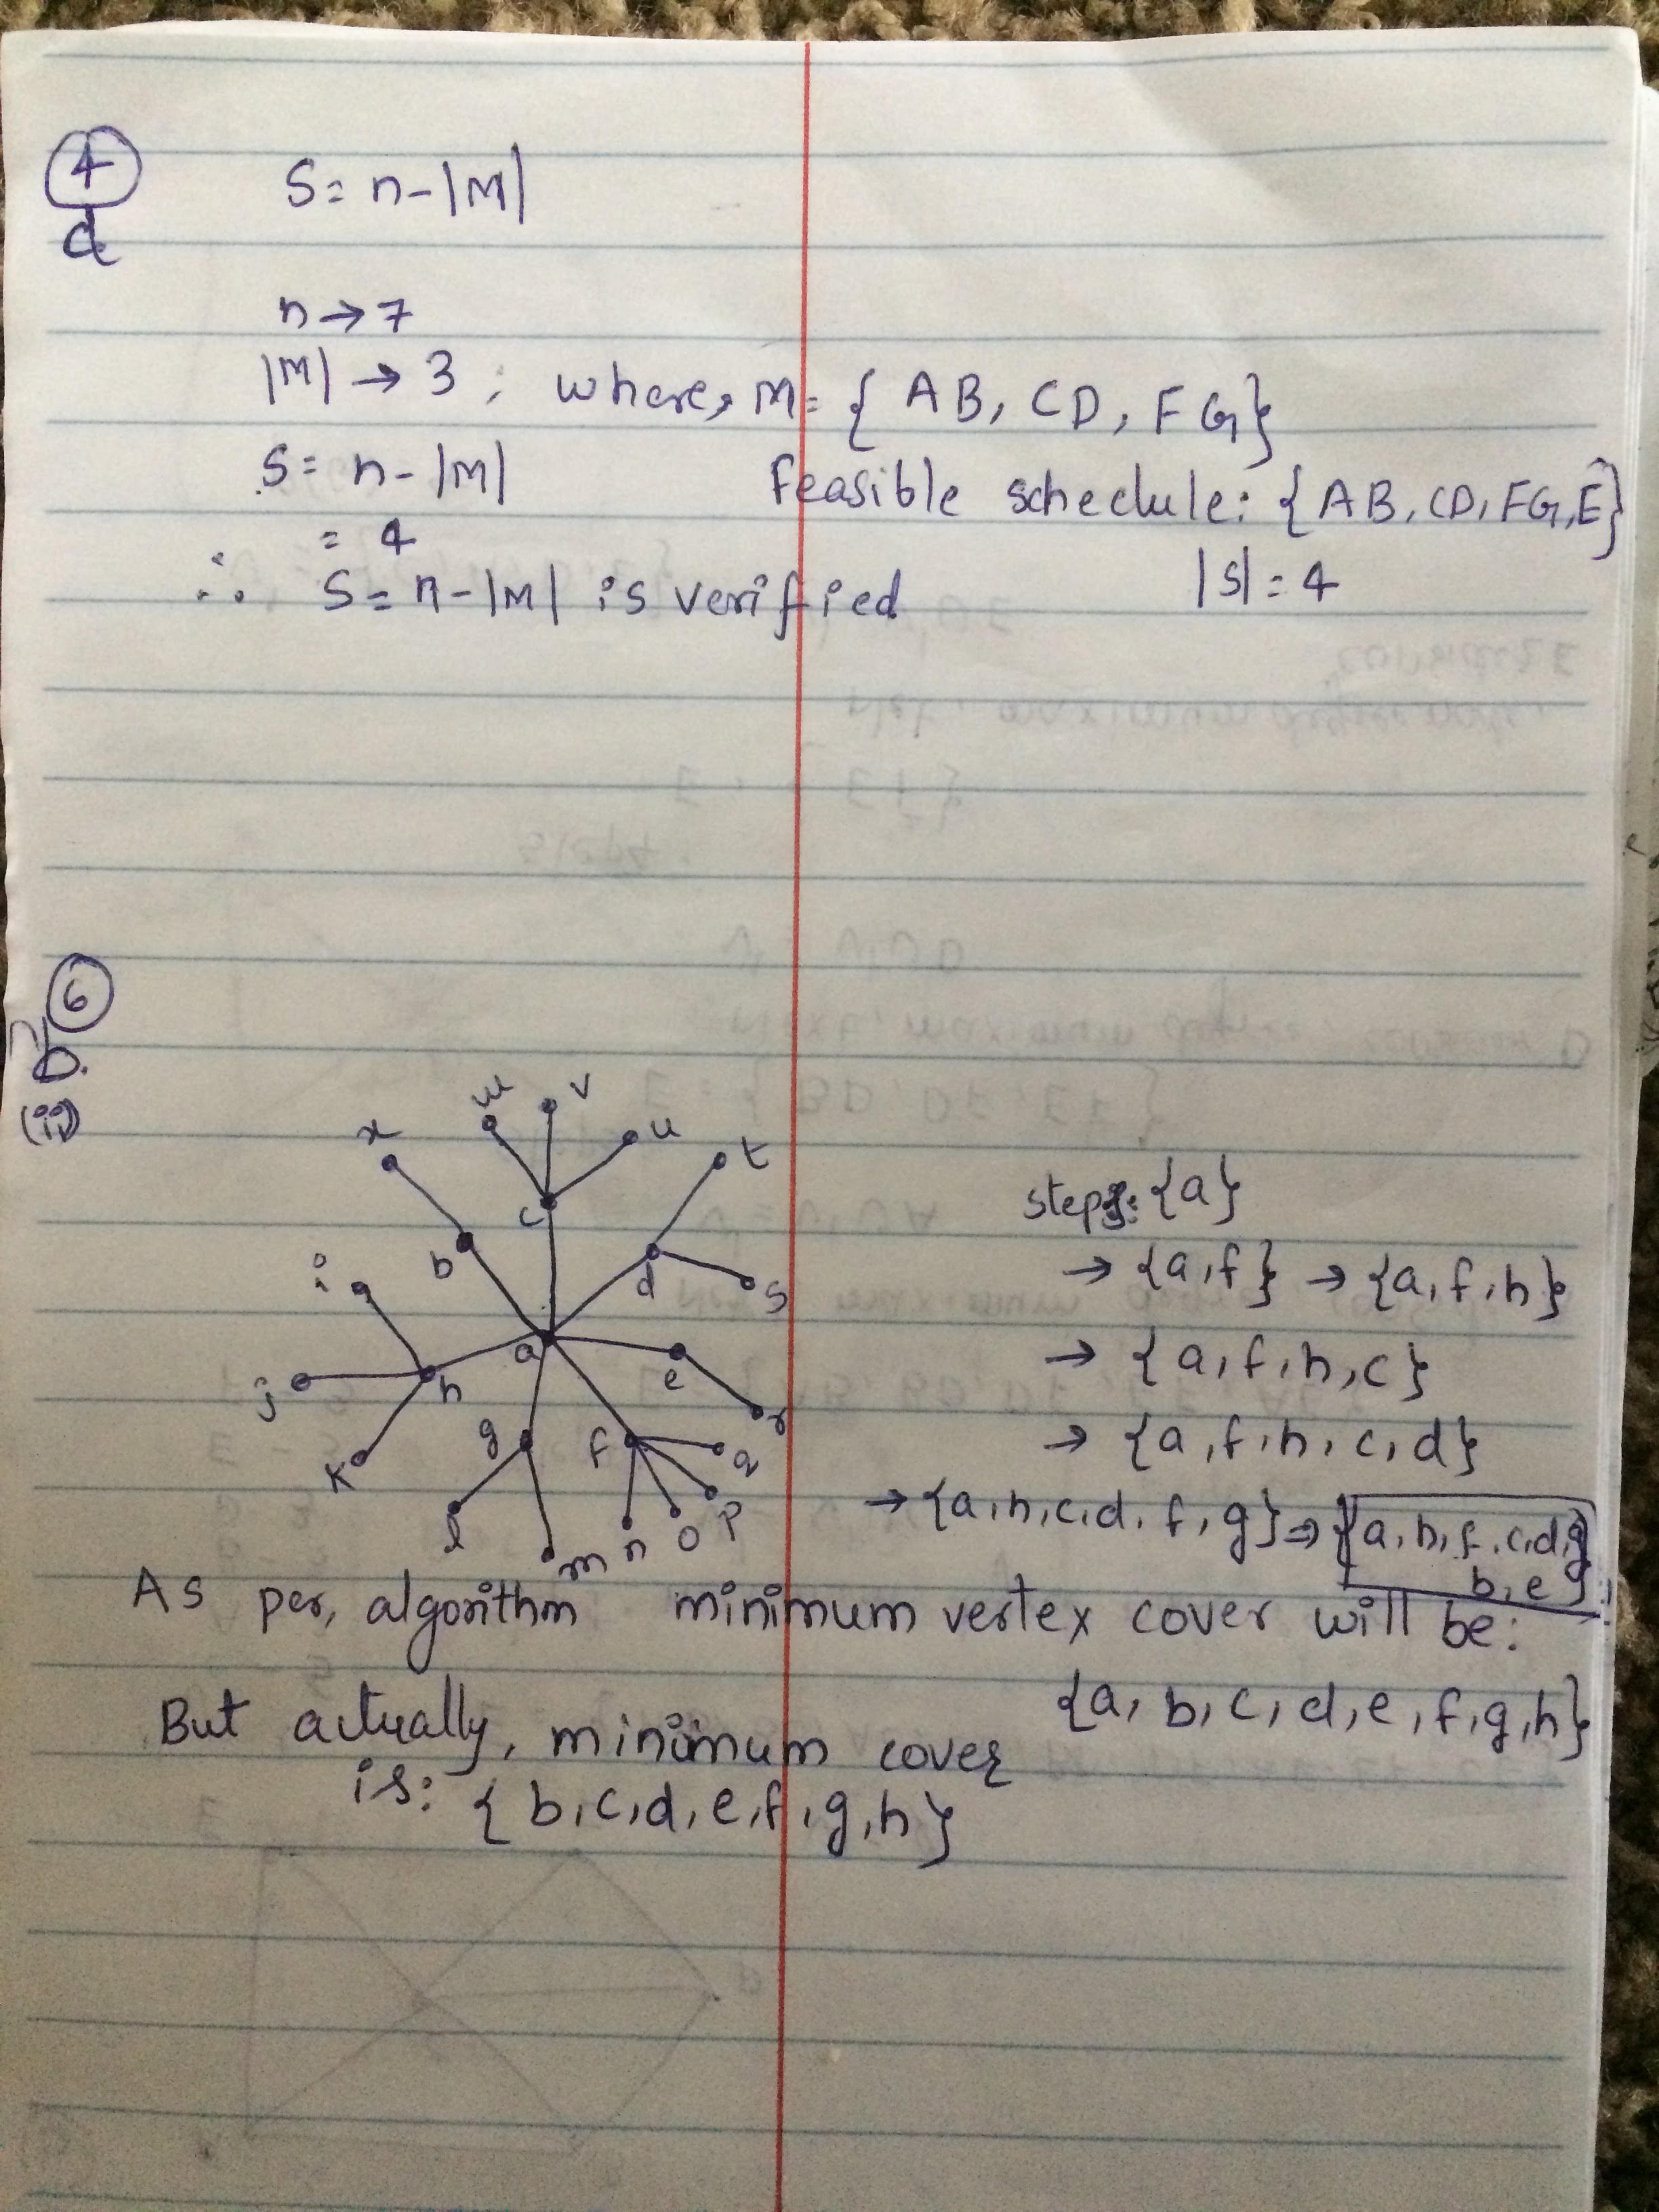 4
d
S = n - |M|
n → 7
|M| → 3 ; where, M = { AB, CD, FG}
S = n - |M|
= 4
Feasible schedule: {AB, CD, FG, E}
|S| = 4
∴ S = n - |M| is verified
6
b.
(ii)
w v
x u t
c
b
i d s
a
j h e
r
g f q
k
l p
m n o
steps: {a}
→ {a, f} → {a, f, h}
→ {a, f, h, c}
→ {a, f, h, c, d}
→ {a, h, c, d, f, g} ⇒ {a, h, f, c, d, g
b, e}
As per, algorithm minimum vertex cover will be:
{a, b, c, d, e, f, g, h}
But actually, minimum cover
is: { b, c, d, e, f, g, h}